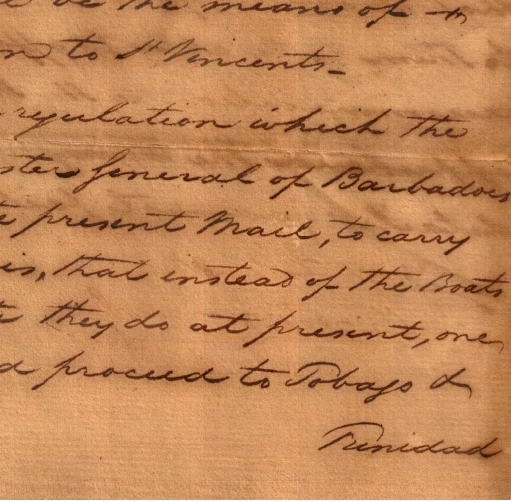 be the means of
to St Vincents-
regulation which the
General of Barbadoes
present Mail, to carry
is, that instead of the Boats
they do at present, one
proceed to Tobago &
Trinidad